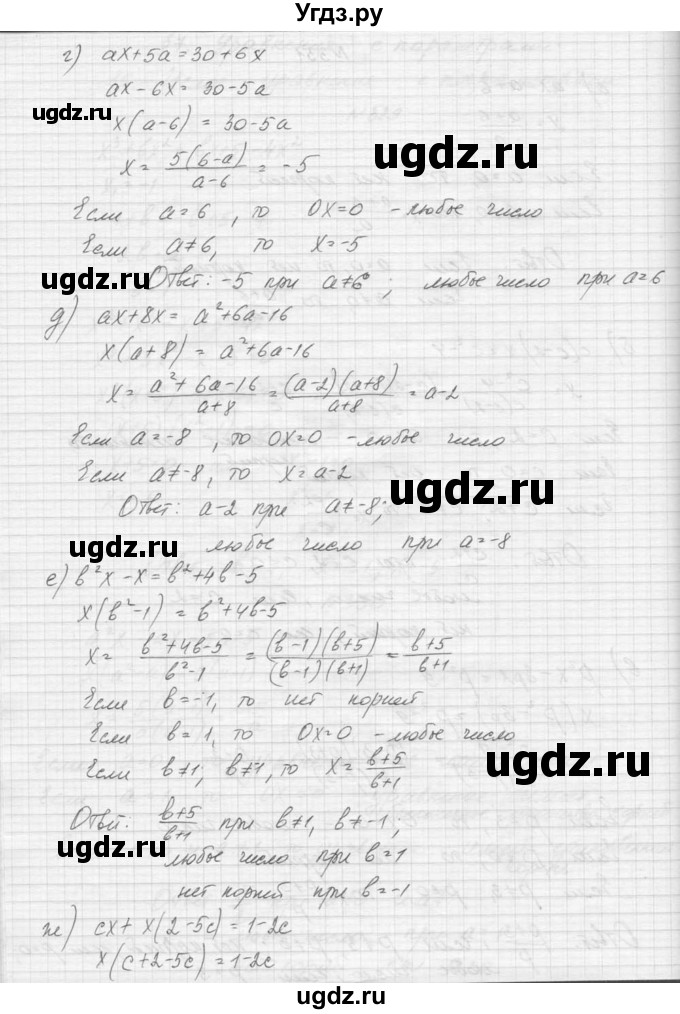 Угдз.ру
г) ax+5a=30+6x
ax-6x=30-5a
x(a-6)=30-5a
x= 5(6-a)/(a-6) = -5
Если a=6, то 0x=0 - любое число
Если a≠6, то x=-5
Ответ: -5 при a≠6; любое число при a=6
д) ax+8x=a²+6a-16
x(a+8)=a²+6a-16
x= (a²+6a-16)/(a+8) = (a-2)(a+8)/(a+8) = a-2
Если a=-8, то 0x=0 - любое число
Если a≠-8, то x=a-2
Ответ: a-2 при a≠-8;
любое число при a=-8
е) в²x-x=в²+4в-5
x(в²-1)=в²+4в-5
x= (в²+4в-5)/(в²-1) = (в-1)(в+5)/(в-1)(в+1) = (в+5)/(в+1)
Если в=-1, то нет корней
Если в=1, то 0x=0 - любое число
Если в≠1, в≠-1, то x= (в+5)/(в+1)
Ответ: (в+5)/(в+1) при в≠1, в≠-1;
любое число при в=1
нет корней при в=-1
ж) cx+x(2-5c)=1-2c
x(c+2-5c)=1-2c
ugdz.ru
ugdz.ru
ugdz.ru
ugdz.ru
ugdz.ru
ugdz.ru
ugdz.ru
ugdz.ru
ugdz.ru
ugdz.ru